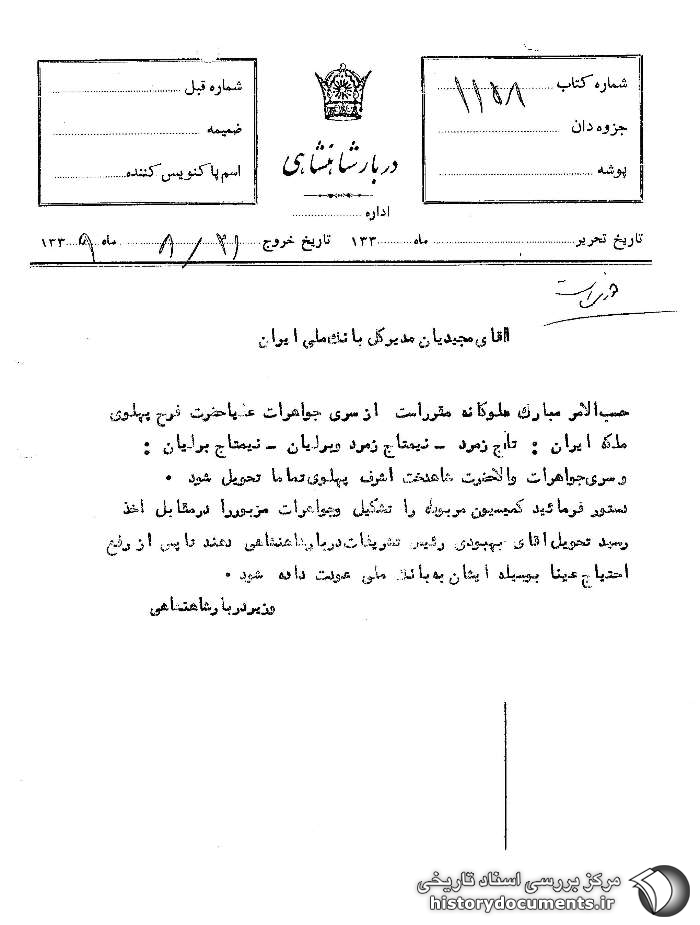 شماره کتاب ۱۱۵۸
جزوه دان
پوشه
دربار شاهنشاهی
اداره
شماره قبل
ضمیمه
اسم پاکنویس کننده
تاریخ تحریر ماه ۱۳۳ تاریخ خروج ۲۱ / ۸ ماه ۱۳۳۹
آقای مجیدیان مدیرکل بانک ملی ایران
حسب الامر مبارک ملوکانه مقرراست از سری جواهرات علیاحضرت فرح پهلوی
ملکه ایران : تاج زمرد ـ نیمتاج زمرد وبرلیان ـ نیمتاج برلیان :
و سری جواهرات والاحضرت شاهدخت اشرف پهلوی تماما تحویل شود ۰
دستور فرمائید کمیسیون مربوطه را تشکیل وجواهرات مزبوررا درمقابل اخذ
رسید تحویل آقای بهبودی رئیس تشریفات دربارشاهنشاهی دهند تا پس از رفع
احتیاج عینا بوسیله ایشان به بانک ملی عودت داده شود ۰
وزیردربارشاهنشاهی
مرکز بررسی اسناد تاریخی
historydocuments.ir